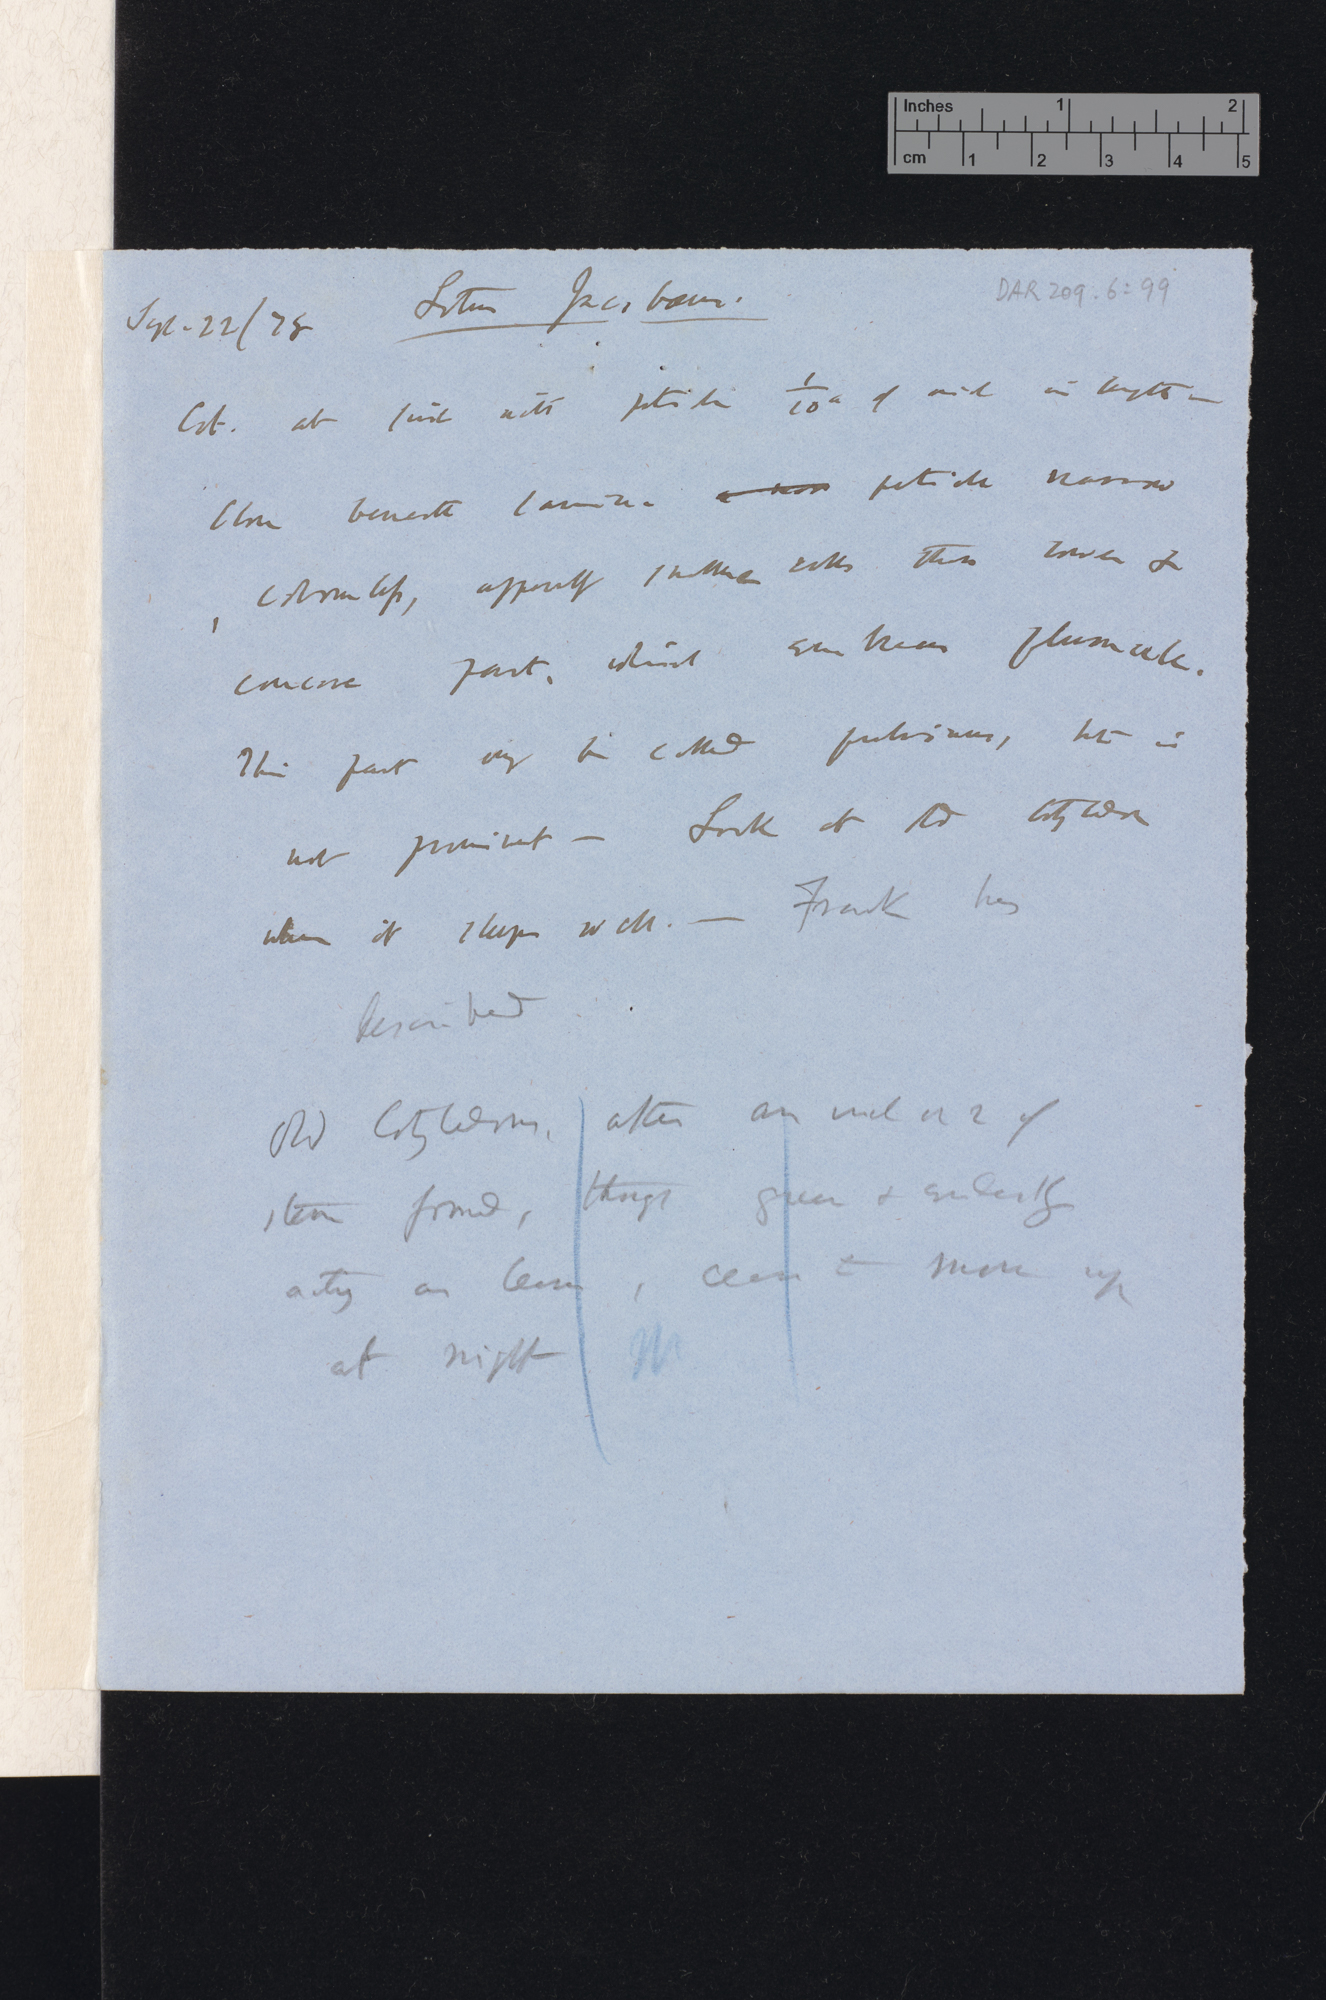 Inches 1 2
cm 1 2 3 4 5
DAR 209.6: 99
Sept. 22/78 Lotus Jacobæus.
Cot. at first with petiole 1/10 of inch in length —
Close beneath lamina petiole narrow
colourless, apparently smaller cells than lower &
concave part, which embraces plumule.
This part may be called pulvinus, but is
not prominent — Look at old cotyledon
when it sleeps well. — Frank has
described
Old Cotyledons, after an inch or 2 of
stem formed, though green & evidently
acting as leaves, cease to move up
at night